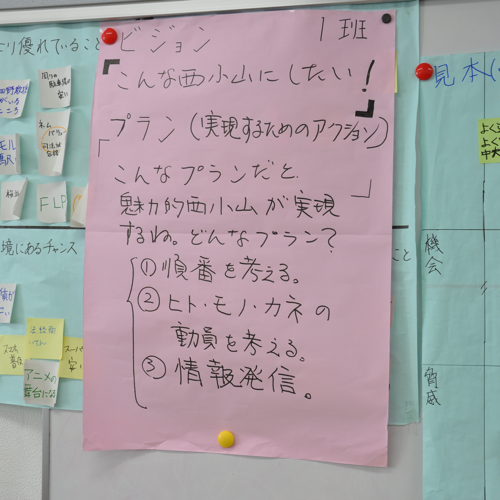 1班
ビジョン
「こんな西小山にしたい！」
プラン(実現するためのアクション)
「こんなプランだと、
魅力的西小山が実現
するね。どんなプラン？」
①順番を考える。
②ヒト・モノ・カネの
動員を考える。
③情報発信。
り優れていること
FLP
境にあるチャンス
アニメの
舞台になる
スーパー
安い
こと
見本
機会
脅威